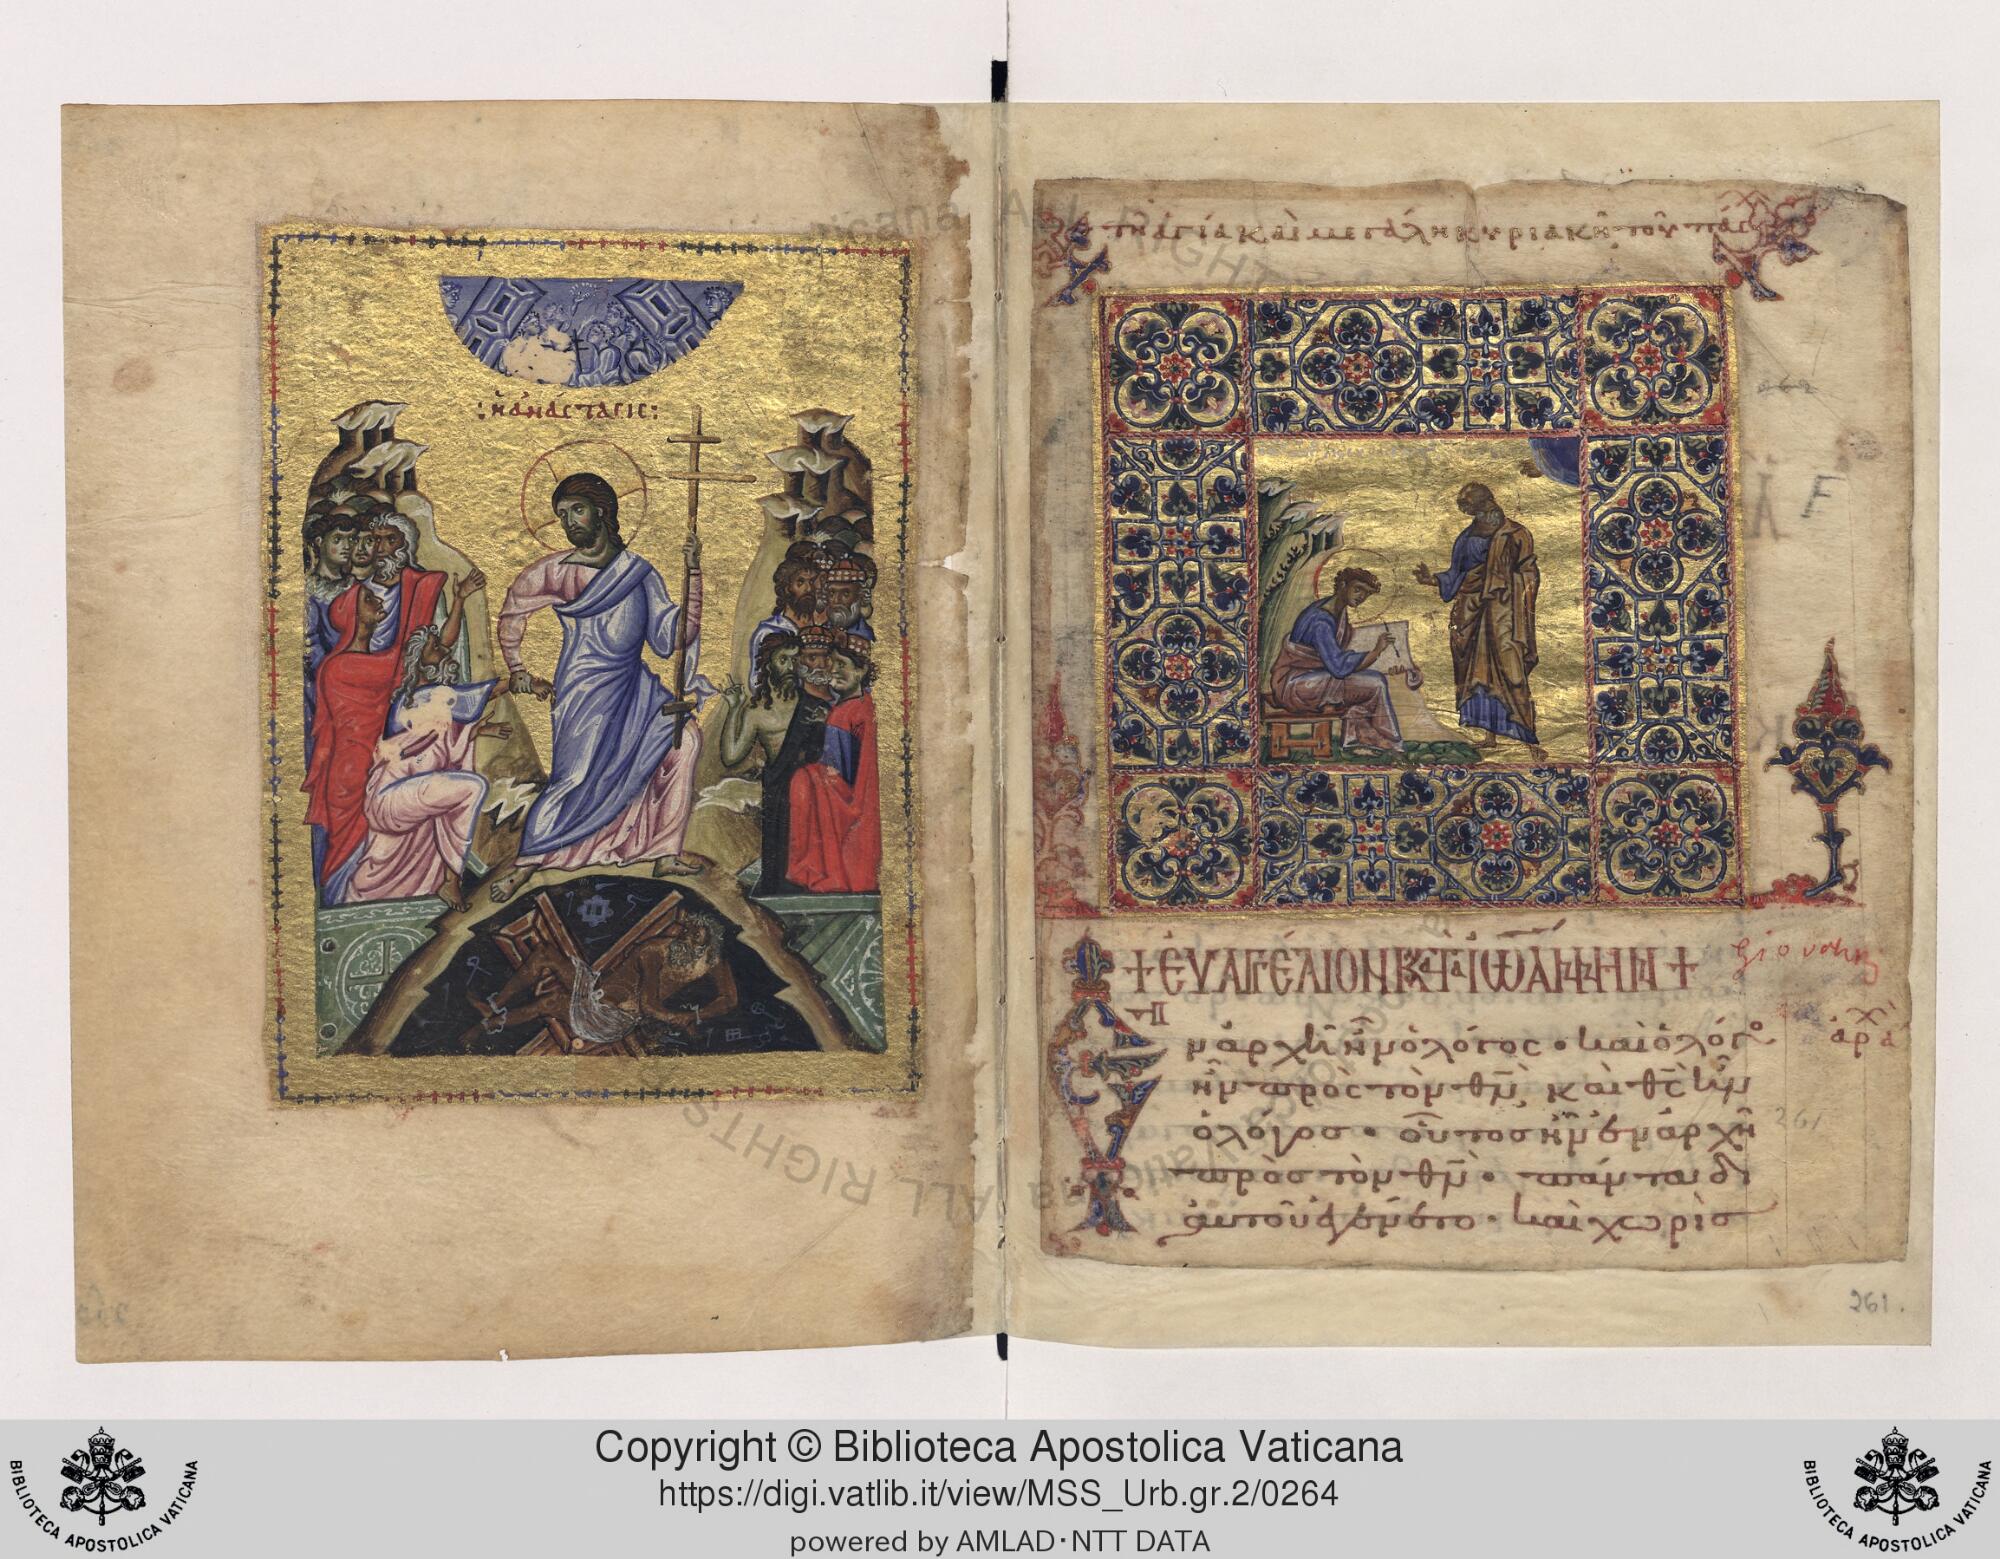 : ἡ ἀνάστασις :
τῆ ἁγία καὶ μεγάλη κυριακῆ τοῦ πάσ
F
+ ΕΥΑΓΓΕΛΙΟΝ ΚΑΤΑ ΙΩΑΝΝΗΝ +
ἀρχ
Εν ἀρχῆ ἦν ὁ λόγος · καὶ ὁ λόγος
ἦν πρὸς τὸν θν, καὶ θς ἦν
ὁ λόγος · οὗτος ἦν ἐν ἀρχῆ
261
πρὸς τὸν θν · πάντα δι
αὐτοῦ ἐγένετο · καὶ χωρὶς
261.
Copyright © Biblioteca Apostolica Vaticana
https://digi.vatlib.it/view/MSS_Urb.gr.2/0264
powered by AMLAD·NTT DATA
BIBLIOTECA APOSTOLICA VATICANA
BIBLIOTECA APOSTOLICA VATICANA